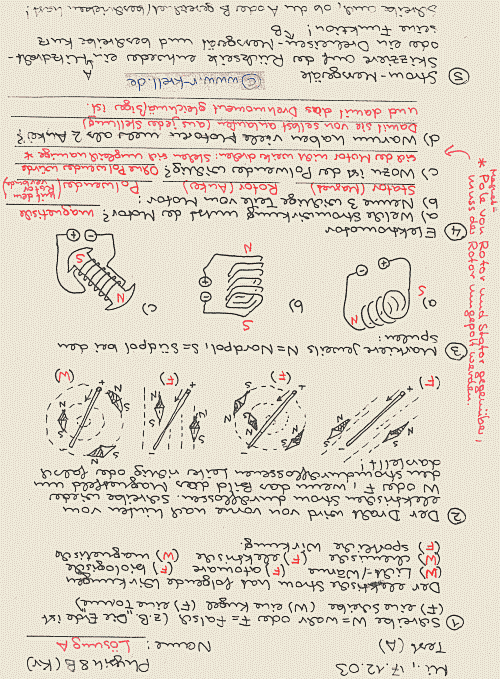 Mi., 17.12.03 Physik 8B (Kr)
Test (A) Name: Lösung A
① Schreibe W=wahr oder F=Falsch (z.B. "Die Erde ist
(F) eine Scheibe (W) eine Kugel (F) eine Tonne")
Der elektrische Strom hat folgende Wirkungen
(W) Licht-+Wärme (F) atomare (F) biologische
(W) chemische (F) elektrische (W) magnetische
(F) sportliche Wirkung.
② Der Draht wird von vorne nach hinten vom
elektrischen Strom durchflossen. Schreibe wieder
W oder F, wenn das Bild das Magnetfeld um
den stromdurchflossenen Leiter richtig oder falsch
darstellt:
(F) (F) (F) (W)
③ Markiere jeweils N=Nordpol, S=Südpol bei den
Spulen:
a) b) c)
④ Elektromotor
a) Welche Stromwirkung nutzt der Motor? magnetische
b) Nenne 3 wichtige Teile vom Motor:
Stator (Magnet) Rotor (Anker) Polwender
c) Wozu ist der Polwender wichtig? Ohne Polwender würde
sich der Motor nicht weiterdrehen. Stehen sich ungleichnamige *
d) Warum haben viele Motoren mehr als 2 Anker?
Damit sie von selbst anlaufen (aus jeder Stellung)
und damit das Drehmoment gleichmäßiger ist.
* Magnet=
Pole von Rotor und Stator gegenüber,
muss der Rotor umgepolt werden.
© www.r-krell.de
⑤ Strom-Messgeräte
Skizziere auf der Rückseite entweder ein Hitzdraht- A
oder ein Dreheisen-Messgerät und beschreibe kurz B
seine Funktion!
Schreibe auch, ob du A oder B gezeichnet/beschrieben hast!